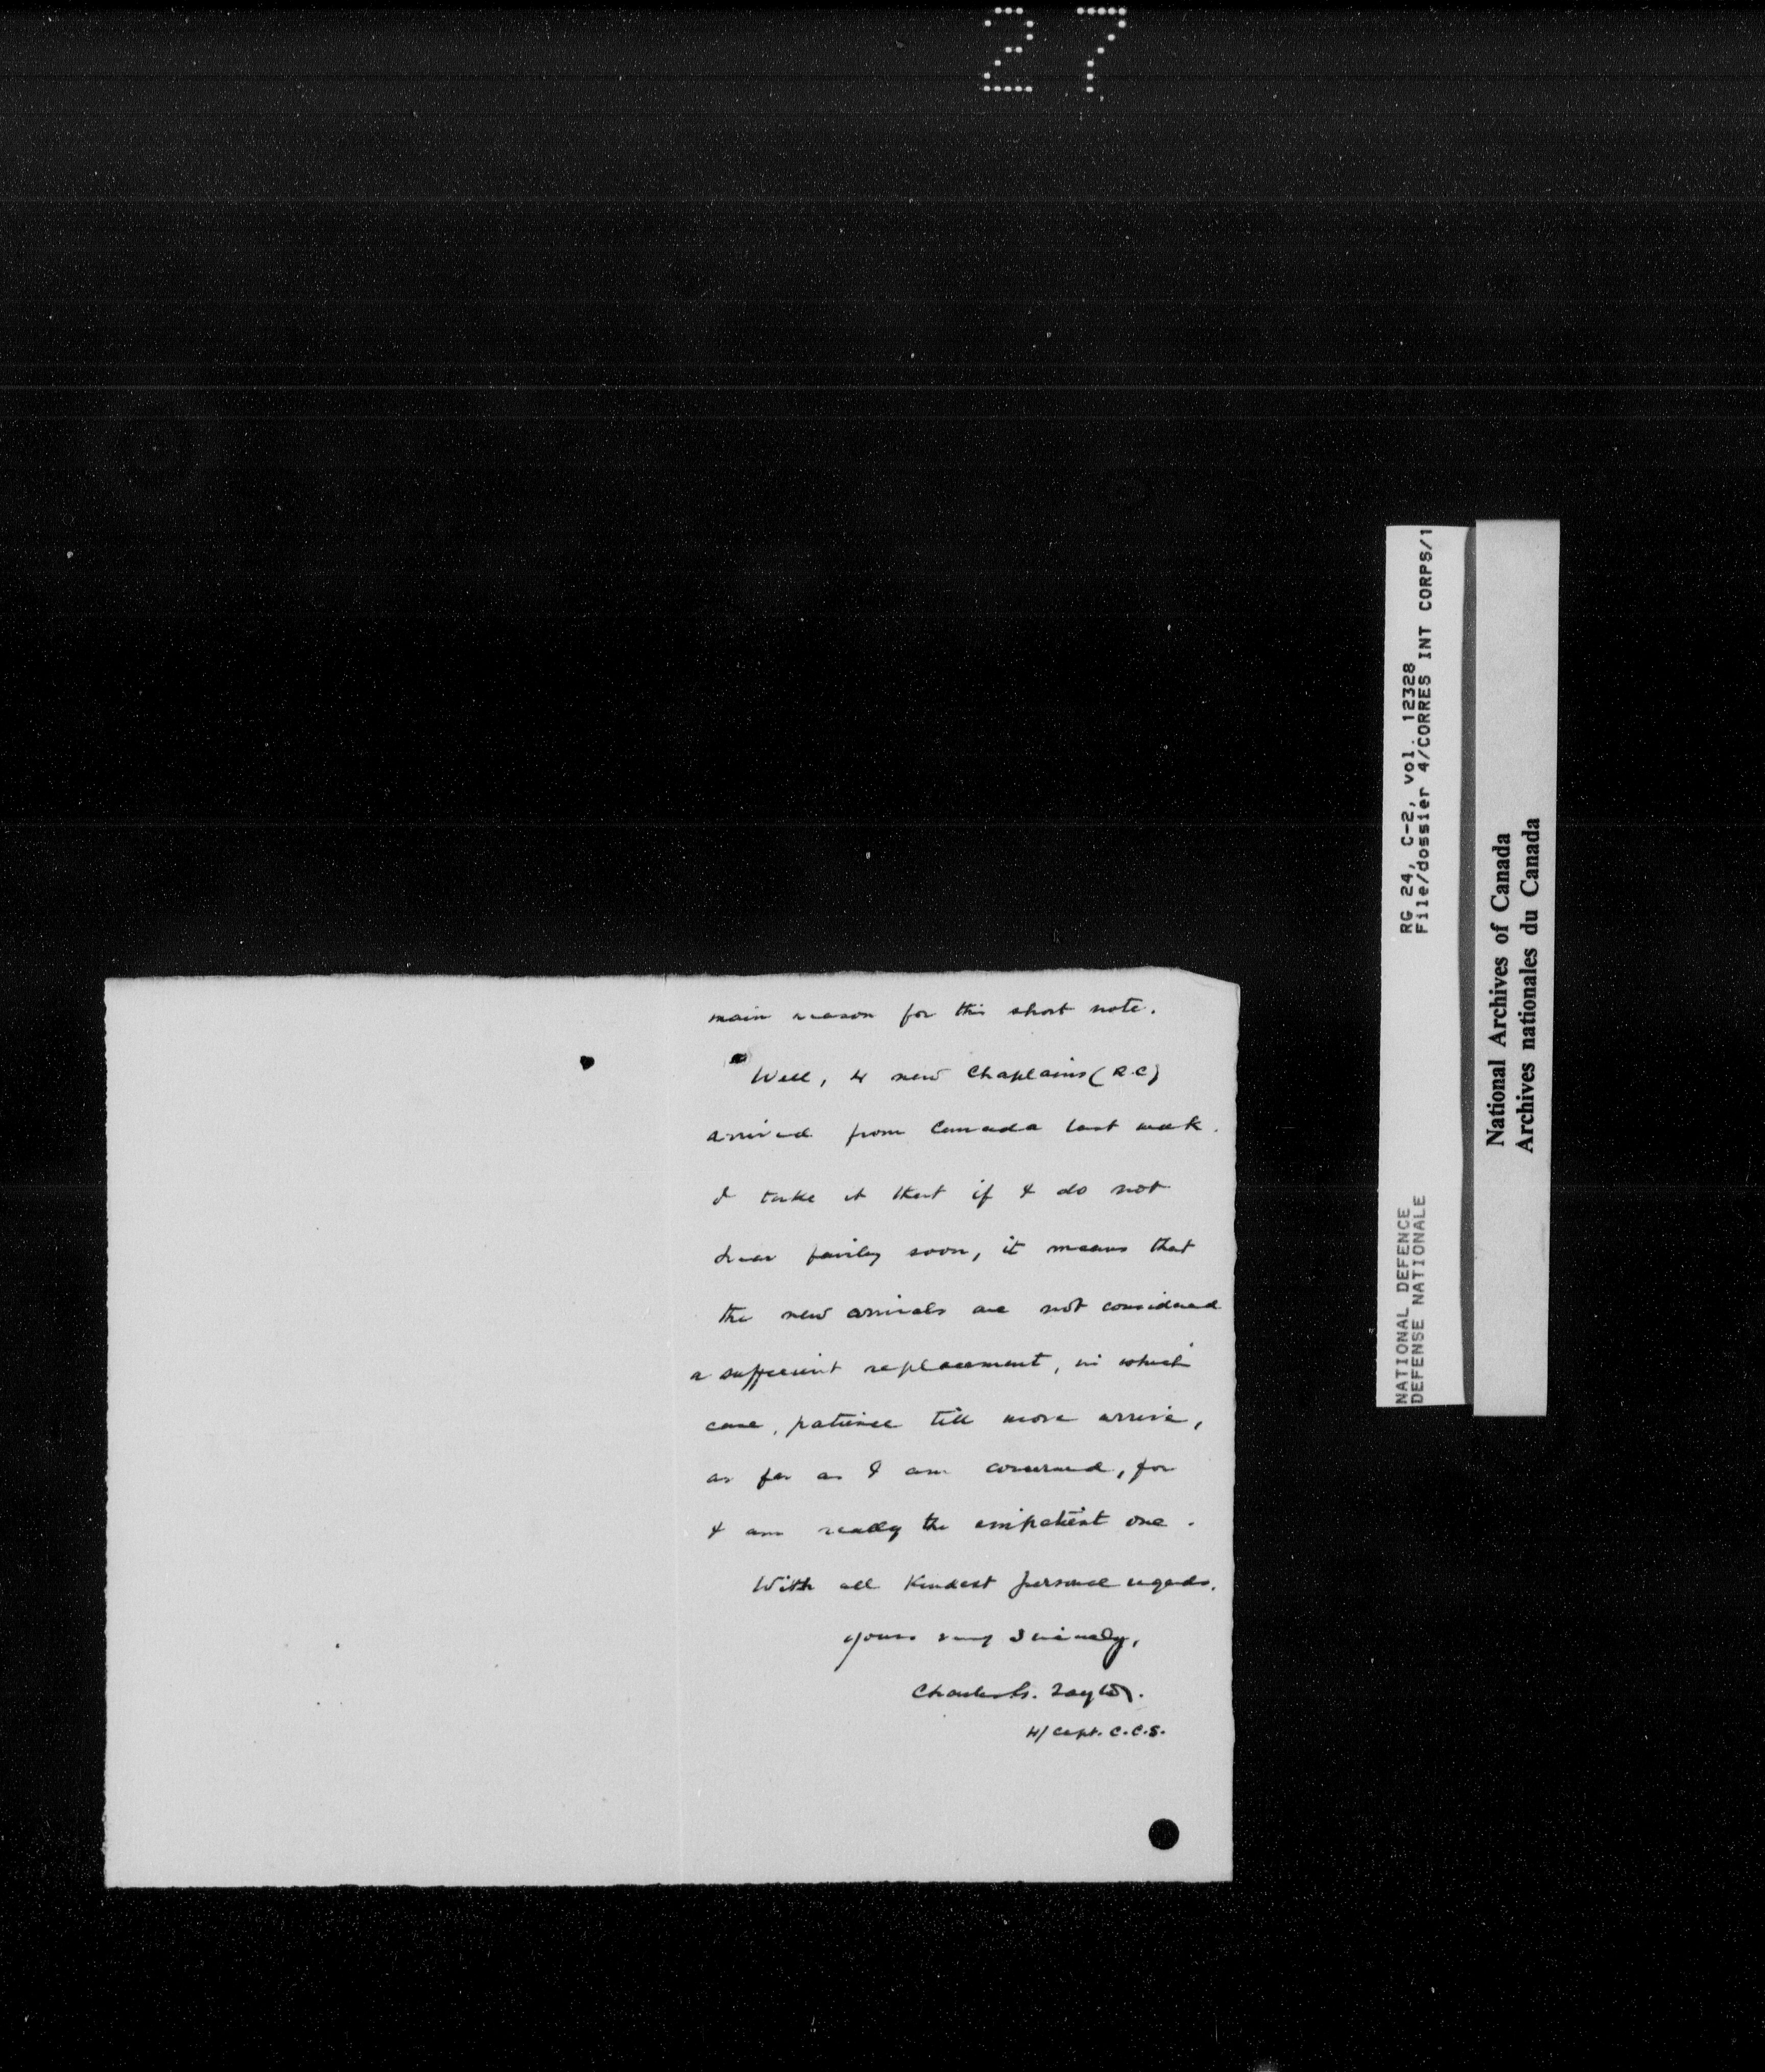 27
main reason for this short note.
Well, 4 new Chaplains (R.C)
arrived from Canada last week.
I take it that if I do not
hear fairly soon, it means that
the new arrivals are not considered
a sufficient replacement, in which
case, patience till more arrive,
as far as I am concerned, for
I am really the impatient one.
With all kindest personal regards.
yours very sincerely,
Charles G. Taylor.
H/Capt. C.C.S.
RG 24, C-2, vol. 12328
File/dossier 4/CORRES INT CORPS/1
NATIONAL DEFENCE
DEFENSE NATIONALE
National Archives of Canada
Archives nationales du Canada